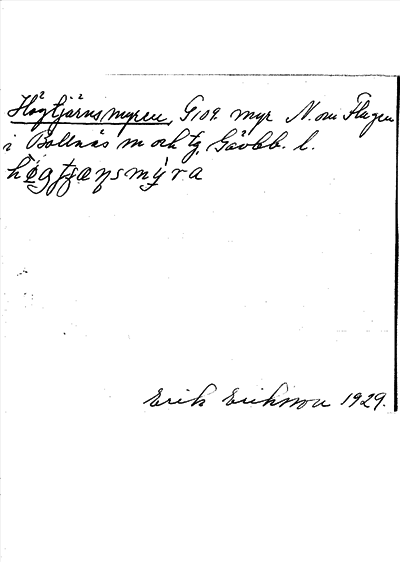 Högtjärnsmyren, G109. myr N. om Flugen
i Bollnäs sn och tg, Gävleb. l.
høgtjæɳsmýra
Erik Eriksson 1929.